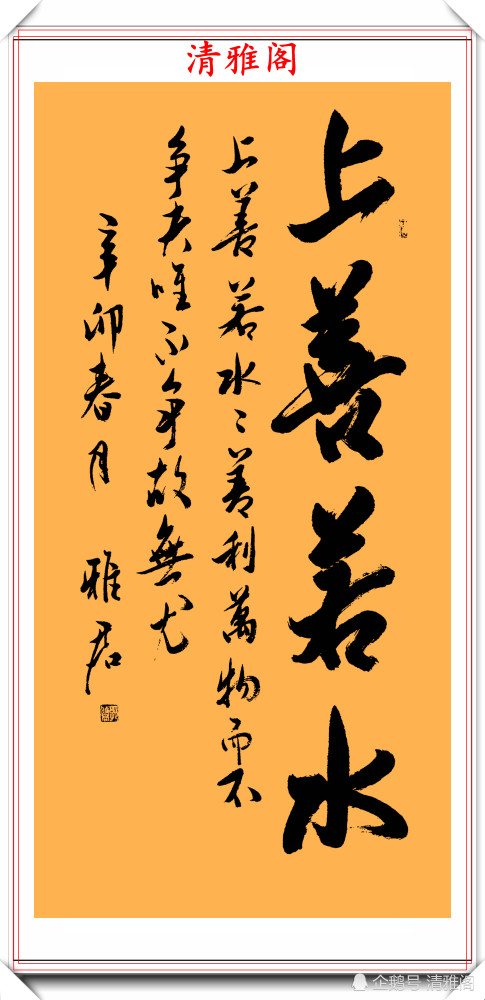 清雅阁
上善若水
上善若水〻善利萬物而不
争夫唯不争故無尤
辛卯春月 雅君
企鹅号 清雅阁